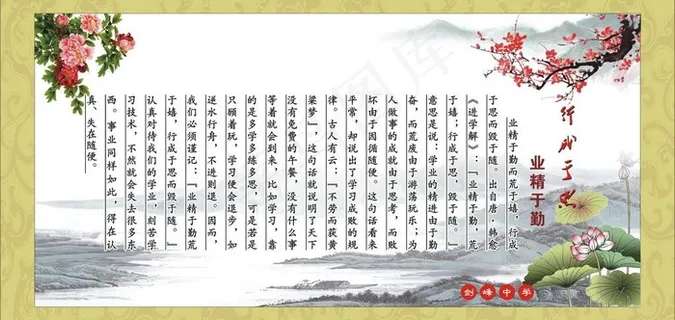 行成于思
业精于勤
业精于勤而荒于嬉，行成
于思而毁于随。出自唐·韩愈
《进学解》：「业精于勤，荒
于嬉；行成于思，毁于随。」
意思是说：学业的精进由于勤
奋，而荒废由于游荡玩乐；为
人做事的成就由于思考，而败
坏由于因循随便。这句话看来
平常，却说出了学习成败的规
律。古人有云：「不劳而获黄
粱梦」，这句话就说明了天下
没有免费的午餐，没有什么事
等着就会到来，比如学习，靠
的是多学多练多思，可是若是
只顾着玩，学习便会退步，如
逆水行舟，不进则退。因而，
我们必须谨记：『业精于勤荒
于嬉，行成于思而毁于随。』
认真对待我们的学业，刻苦学
习技术，不然就会失去很多东
西。事业同样如此，得在认
真、失在随便。
剑峰中学